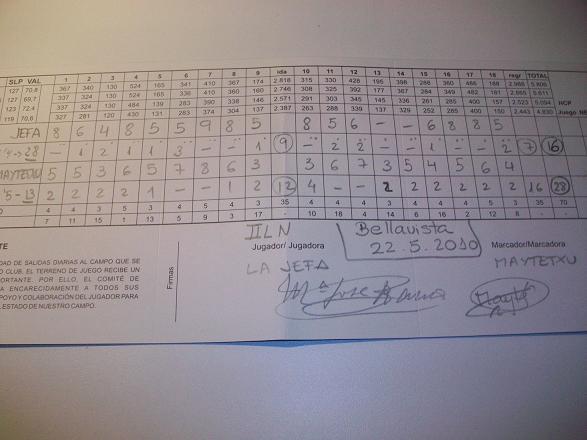 SLP VAL 1 2 3 4 5 6 7 8 9 ida 10 11 12 13 14 15 16 17 18 regr TOTAL
127 70,8 367 340 130 524 165 341 410 367 174 2.818 315 330 428 195 398
127 69,7 337 324 130 524 165 336 410 360 160 2.746 308 325 392 177 367
123 72,4 337 324 130 484 139 283 390 338 146 2.571 291 303 345 145 336 261 285 400 157 2.523 5.094 HCP
119 70,6 327 281 120 430 131 283 374 304 137 2.387 263 288 339 137 329 252 265 400 150 2.443 4.830 Juego
JEFA 8 6 4 8 5 5 9 8 5 8 5 6 - - 6 8 8 5
28 - 1 2 1 1 3 - - 1 9 - 2 2 - - 1 - - 2 7 16
MAYTETXU 5 5 3 6 5 7 8 6 3 3 6 7 3 5 4 5 6 4
13 2 2 2 2 1 - - 1 2 12 4 - - 2 2 2 2 2 2 16 28
4 4 3 5 3 4 5 4 3 35 4 4 4 3 4 4 4 5 3 35 70
7 11 15 1 13 5 9 3 17 - 10 18 4 14 6 16 2 12 8 -
IILN Bellavista
Jugador/ Jugadora 22.5.2010 Marcador/Marcadora
LA JEFA MAYTETXU
Firmas
DAD DE SALIDAS DIARIAS AL CAMPO QUE SE
O CLUB. EL TERRENO DE JUEGO RECIBE UN
PORTANTE. POR ELLO, EL COMITÉ DE
A ENCARECIDAMENTE A TODOS SUS
POYO Y COLABORACIÓN DEL JUGADOR PARA
ESTADO DE NUESTRO CAMPO.
Mª Jose
Mayte